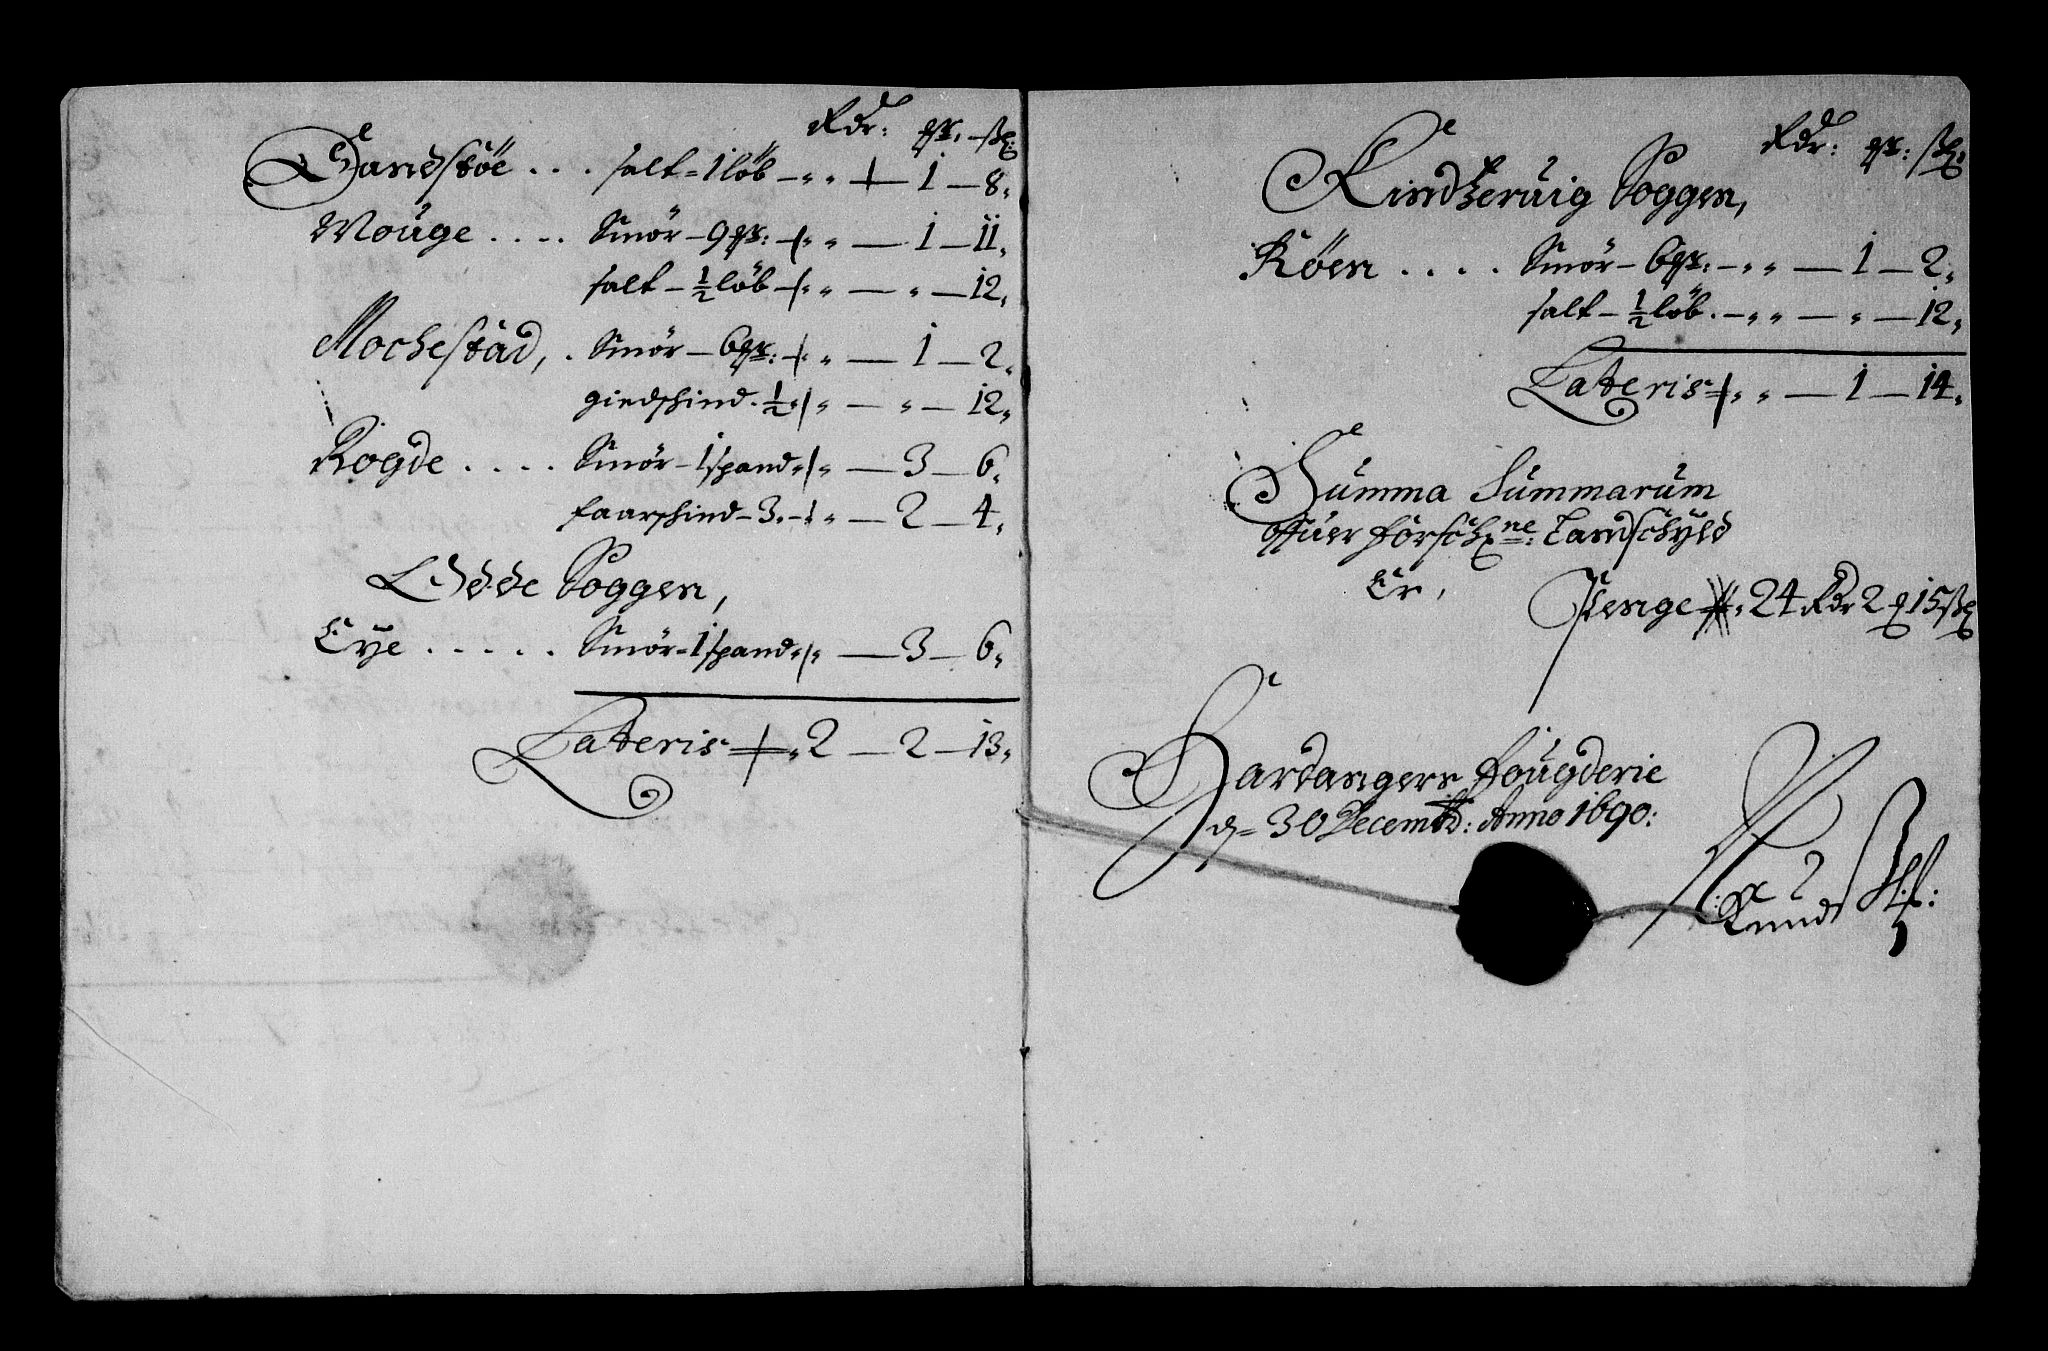 Rdr: mrk: ß:
Sandstöe . . . salt = 1 löb - " " + 1 - 8"
Mouge . . . . Smör - 9 mrk: + " " - 1 - 11"
salt - ½ löb + " " - " - 12"
Mochestad, . Smör - 6 mrk: + " " - 1 - 2"
giedschind - ½ " " - " - 12"
Rogde . . . . Smör - 1 spand " " - 3 - 6"
faarschind - 3 - " " - 2 - 4"
Odde Soggen,
Eye . . . . . Smör = 1 spand " " - 3 - 6"
Lateris 2 - 2 - 13"
Rdr: mrk: ß:
Kindtzeruig Soggen,
Röen . . . . Smör - 6 mrk: - " " - 1 - 2"
salt - ½ löb. - " " - " - 12"
Lateris " " - 1 - 14"
Summa Summarum
offuer forschne: Landschyld
Er,
Penge 24 Rdr 2 15 ß
Hardangers fougderie
d = 30 Decembr: Anno 1690:
Knud